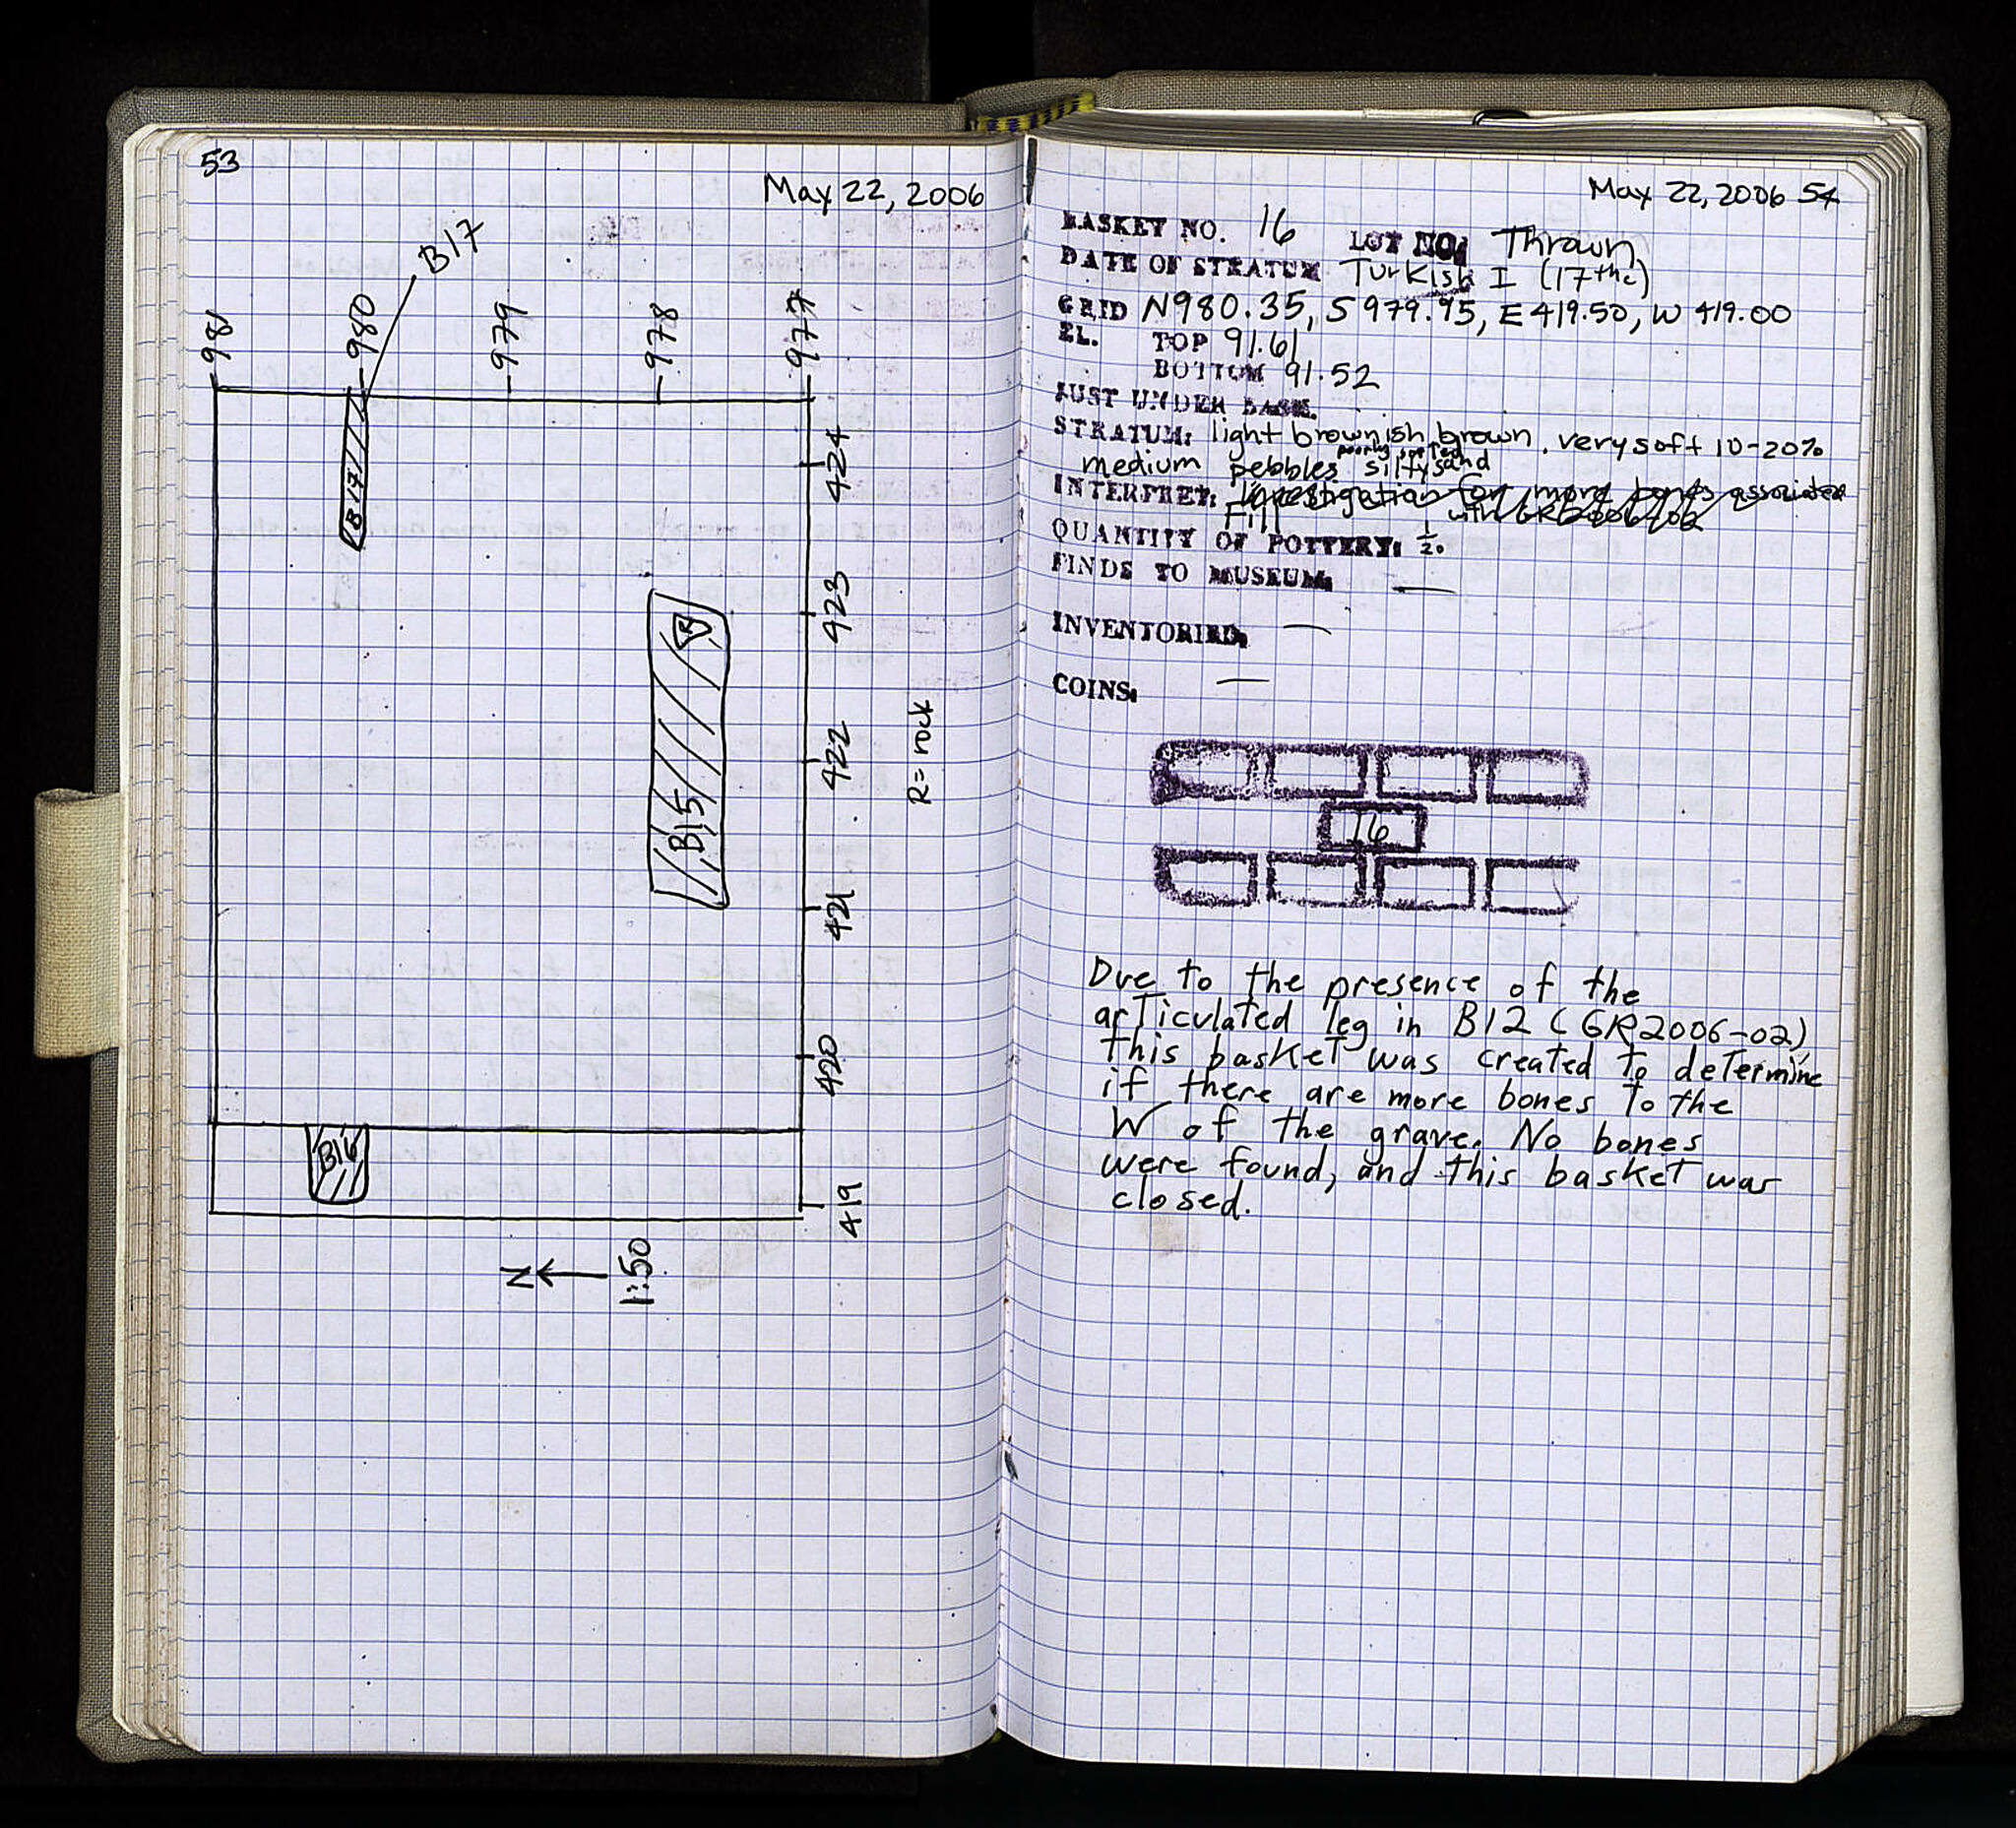 53
May 22, 2006
B17
981
980
979
978
977
B17
424
923
R
422
R = rock
B15
421
420
B16
419
N
1:50
May 22, 2006 54
BASKET NO. 16 LOT NO. Thrown
DATE OF STRATUM Turkish I (17thc)
GRID N980.35, S979.95, E419.50, W 419.00
EL. TOP 91.61
BOTTOM 91.52
JUST UNDER BASK.
STRATUM: light brownish brown. very soft 10-20%
medium pebbles poorly sorted silty sand
INTERPRET: Investigation for more bones associated
with GR2006-02
Fill
QUANTITY OF POTTERY: 1/20
FINDS TO MUSEUM: —
INVENTORIED: —
COINS: —
16
Due to the presence of the
articulated leg in B12 (GR2006-02)
this basket was created to determine
if there are more bones to the
W of the grave. No bones
were found, and this basket was
closed.